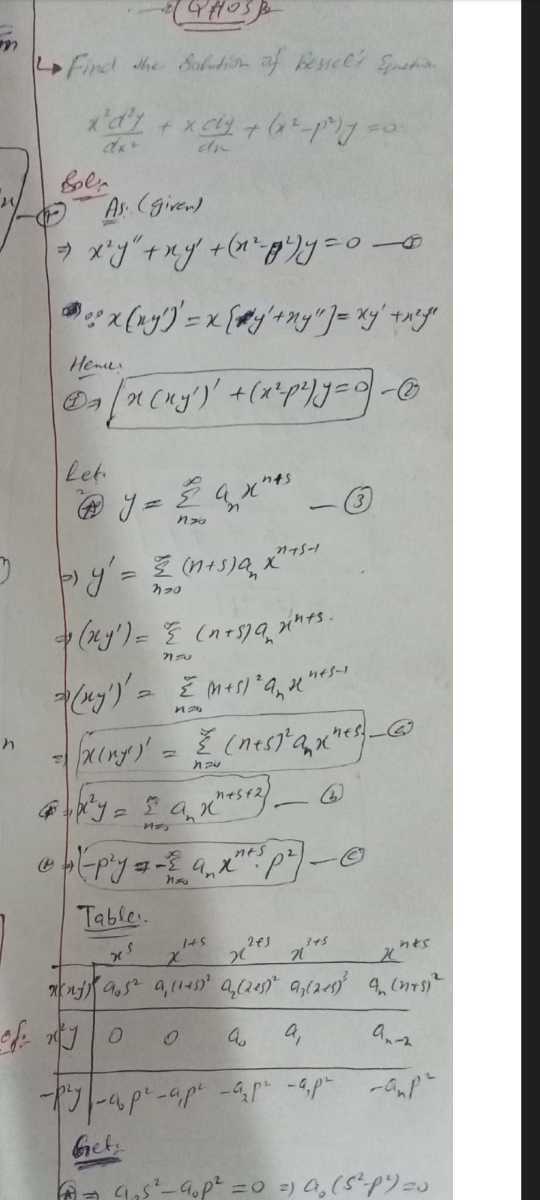 Find the Solution of Bessel's Equation
x²d²y/dx² + x dy/dx + (x²-p²)y = 0
Sol:
As. (given)
⇒ x²y" + xy' + (x²-p²)y = 0 — ①
∵ x(xy')' = x[y' + xy"] = xy' + x²y"
Hence.
①⇒ x(xy')' + (x²-p²)y = 0 — ②
Let.
y = Σ_{n=0}^∞ aₙ x^{n+s} — ③
⇒ y' = Σ_{n=0}^∞ (n+s)aₙ x^{n+s-1}
⇒ (xy') = Σ_{n=0}^∞ (n+s)aₙ x^{n+s}.
⇒ (xy')' = Σ_{n=0}^∞ (n+s)² aₙ x^{n+s-1}
⇒ x(xy')' = Σ_{n=0}^∞ (n+s)² aₙ x^{n+s} — ⓐ
⇒ x²y = Σ_{n=0}^∞ aₙ x^{n+s+2} — ⓑ
⇒ -p²y = -Σ_{n=0}^∞ aₙ x^{n+s}. p² — ⓒ
Table:.
x^s x^{1+s} x^{2+s} x^{3+s} x^{n+s}
x(xy')' a₀s² a₁(1+s)² a₂(2+s)² a₃(2+s)³ aₙ(n+s)²
x²y 0 0 a₀ a₁ aₙ₋₂
-p²y -a₀p² -a₁p² -a₂p² -a₁p² -aₙp²
Get:
⇒ a₀s² - a₀p² = 0 ⇒ a₀(s²-p²) = 0